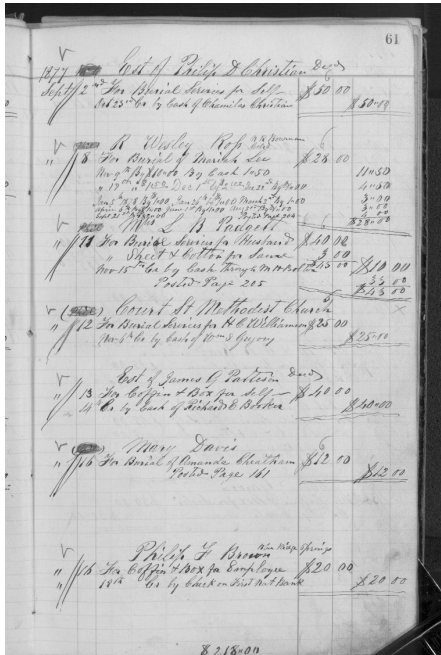 61
1877 Est of Philip D Christian Decd
Sept 2nd For Burial Services for Self $50 00
Oct 23rd Cr by Cash of Christian $50 00
R Wesley Ross
" 8 For Burial of Mariah Lee $28 00
Nov 9th By $11=00 By Cash 1=50 11=50
" 17th Dec 1st 4=50
Jany 1878 By 1=00 March 2nd By 1=00 3=00
By 1=00 June 1st By 1=00 3=00
Sept 21st Page 206 $28=00
Mrs L B Padgett
" 11 For Burial Services for Husband $40 00
" Sheet & Cotton for Same 3 00
Nov 15th Cr by Cash Through $43 00 $10 00
Posted Page 205 33 00
$43 00
Court St Methodist Church
" 12 For Burial Services for H C Williamson $25 00
Nov 5th Cr by Cash of Wm S Guyon $25=00
Est of James G Patteson Decd
" 13 For Coffin & Box for Self $40 00
" 14th Cr by Cash of Richard Booker $40=00
Mary Davis
" 16 For Burial of Amanda Cheatham $12 00
Posted Page 161 $12 00
Philip F Brown Blue Ridge Springs
" 16 For Coffin & Box for Employee $20 00
" 18th Cr by Check on First Nat Bank $20 00
$218=00